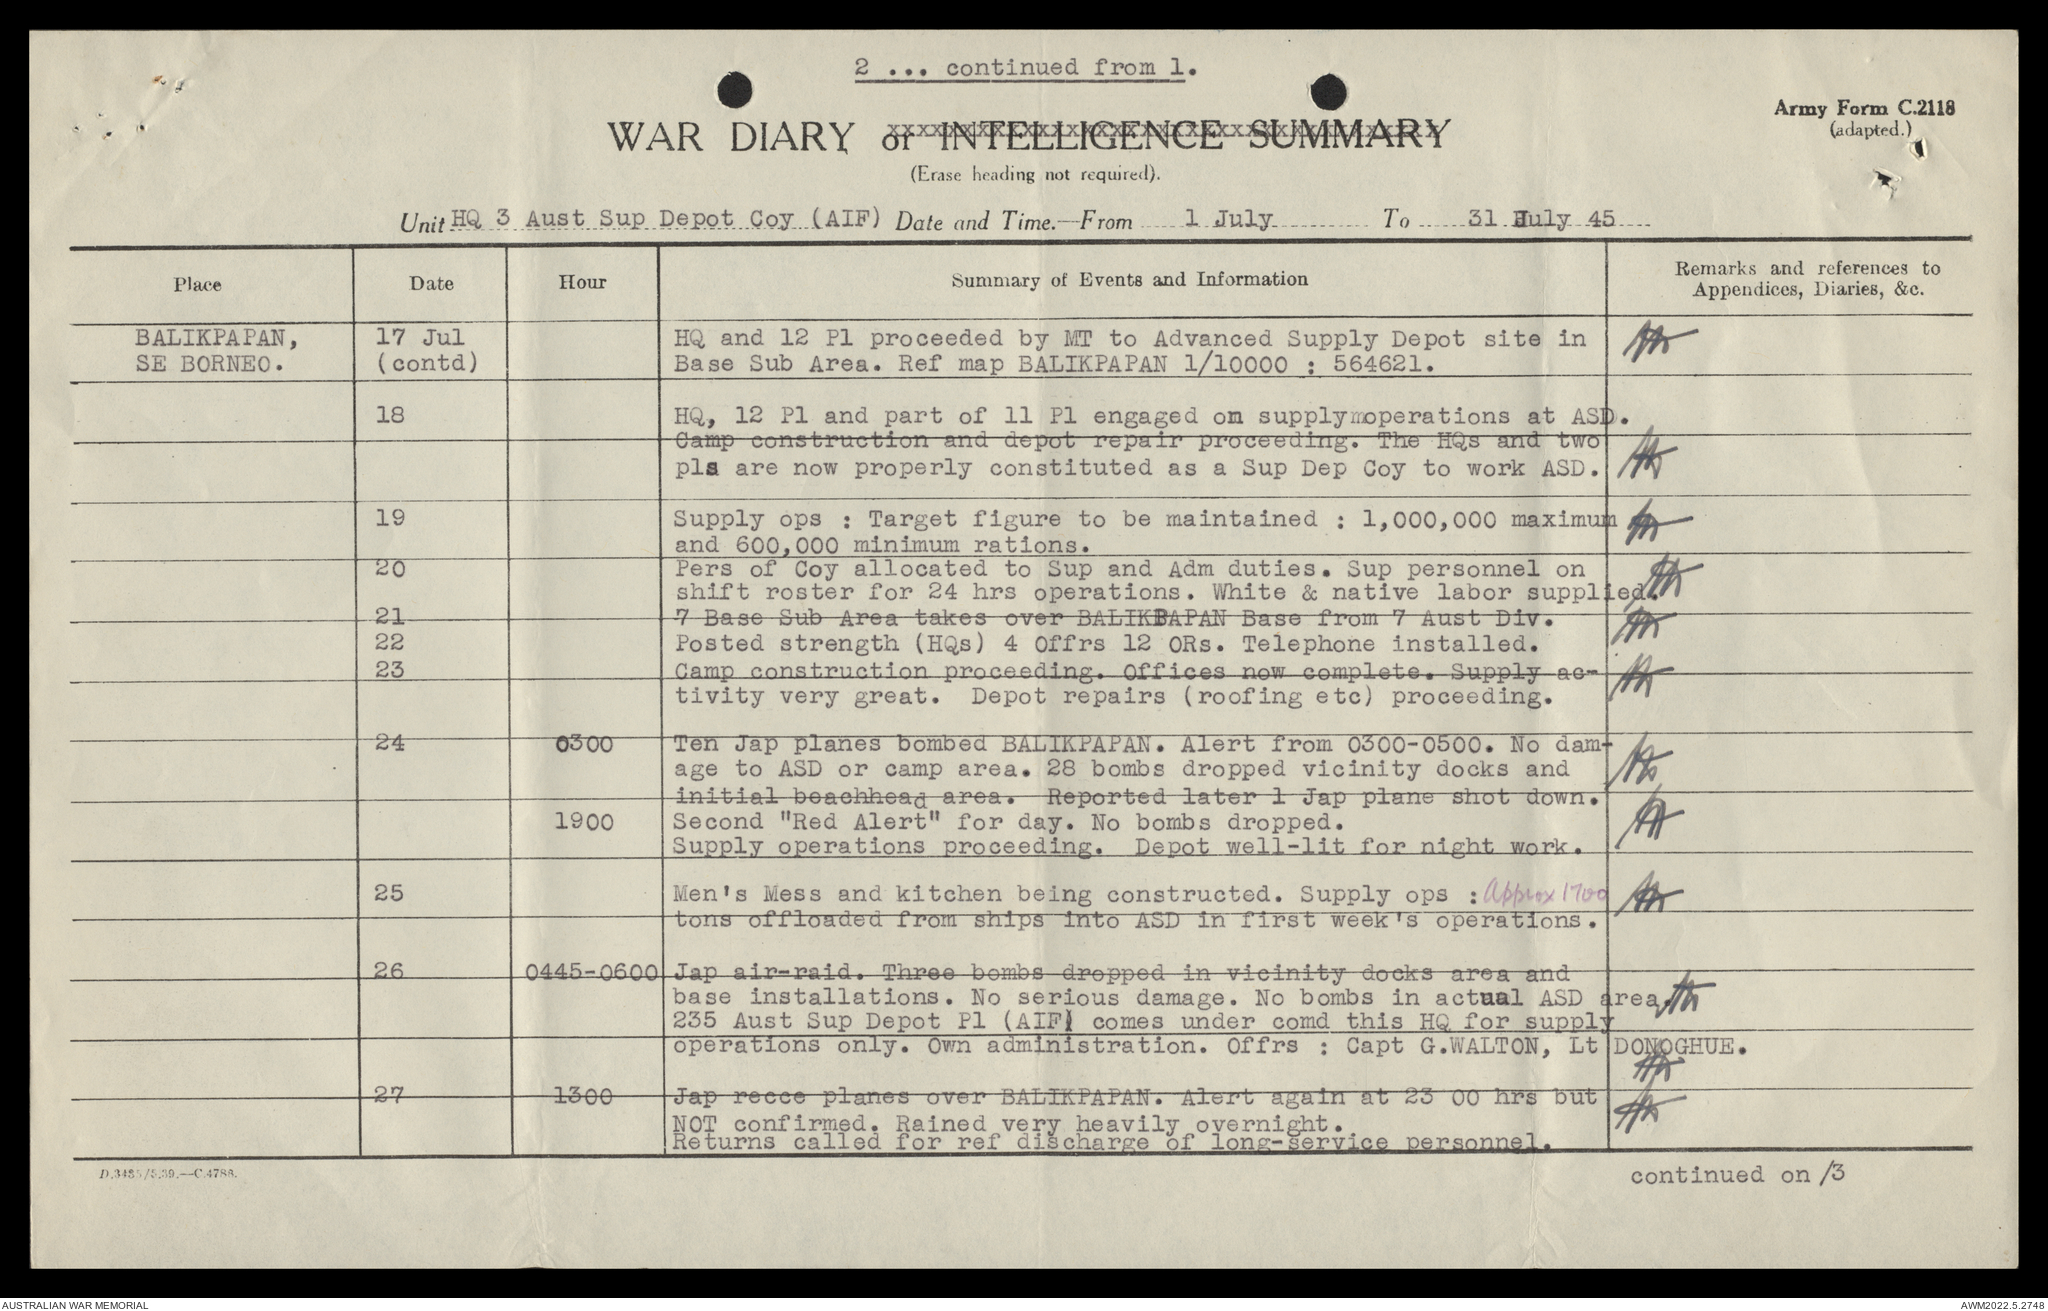 2 ... continued from 1.
Army Form C.2118
(adapted.)
WAR DIARY or INTELLIGENCE SUMMARY
(Erase heading not required).
Unit HQ 3 Aust Sup Depot Coy (AIF) Date and Time.—From 1 July To 31 July 45
Place Date Hour Summary of Events and Information Remarks and references to Appendices, Diaries, &c.
BALIKPAPAN, 17 Jul HQ and 12 Pl proceeded by MT to Advanced Supply Depot site in
SE BORNEO. (contd) Base Sub Area. Ref map BALIKPAPAN 1/10000 : 564621.
18 HQ, 12 Pl and part of 11 Pl engaged on supply operations at ASD.
Camp construction and depot repair proceeding. The HQs and two
pls are now properly constituted as a Sup Dep Coy to work ASD.
19 Supply ops : Target figure to be maintained : 1,000,000 maximum
and 600,000 minimum rations.
20 Pers of Coy allocated to Sup and Adm duties. Sup personnel on
shift roster for 24 hrs operations. White & native labor supplied.
21 7 Base Sub Area takes over BALIKPAPAN Base from 7 Aust Div.
22 Posted strength (HQs) 4 Offrs 12 ORs. Telephone installed.
23 Camp construction proceeding. Offices now complete. Supply ac-
tivity very great. Depot repairs (roofing etc) proceeding.
24 0300 Ten Jap planes bombed BALIKPAPAN. Alert from 0300-0500. No dam-
age to ASD or camp area. 28 bombs dropped vicinity docks and
initial beachhead area. Reported later 1 Jap plane shot down.
1900 Second "Red Alert" for day. No bombs dropped.
Supply operations proceeding. Depot well-lit for night work.
25 Men's Mess and kitchen being constructed. Supply ops : Approx 1700
tons offloaded from ships into ASD in first week's operations.
26 0445-0600 Jap air-raid. Three bombs dropped in vicinity docks area and
base installations. No serious damage. No bombs in actual ASD area.
235 Aust Sup Depot Pl (AIF) comes under comd this HQ for supply
operations only. Own administration. Offrs : Capt G.WALTON, Lt DONOGHUE.
27 1300 Jap recce planes over BALIKPAPAN. Alert again at 23 00 hrs but
NOT confirmed. Rained very heavily overnight.
Returns called for ref discharge of long-service personnel.
continued on /3
AUSTRALIAN WAR MEMORIAL
AWM2022.5.2748